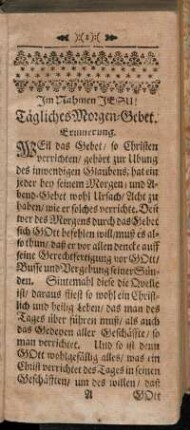 :(1):
Im Nahmen JESU!
Tägliches Morgen-Gebet.
Erinnerung.
WEil das Gebet/ so Christen
verrichten/ gehört zur Ubung
des inwendigen Glaubens, hat ein
jeder bey seinem Morgen- und A-
bend-Gebet wohl Ursach/ Acht zu
haben/ wie er solches verrichte. Dest
wer des Morgens durch das Gebet
sich GOtt befehlen will/ muß es al-
so thun/ daß er vor allen dencke auff
seine Gerechtfertigung vor GOtt/
Busse und Vergebung seiner Sün-
den. Sintemahl diese die Qvelle
ist/ daraus fliest so wohl ein Christ-
lich und heilig Leben/ das man des
Tages über führen muß/ als auch
das Gedeyen aller Geschäffte/ so
man verrichtet. Und so ist denn
GOtt wohlgefällig alles/ was ein
Christ verrichtet des Tages in seinen
Geschäfften/ um des willen/ daß
A GOtt